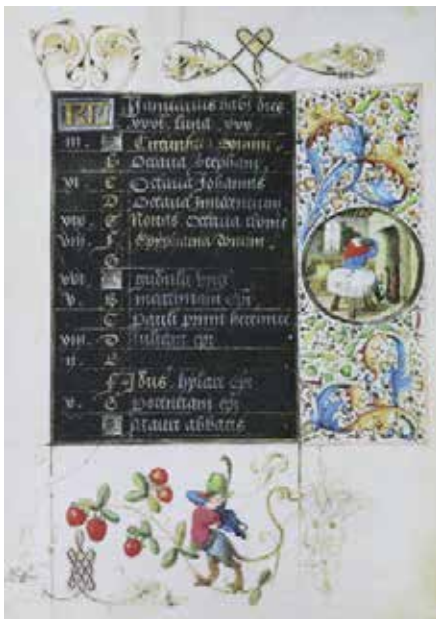 KL Januarius habt dies
xxxi. luna. xxx
iii. A Circumcisio domini.
b Octaua stephani.
xi. C Octaua Johannis
D Octaua Innocentum
xix. E Nonas. Octaua thome
viii. F Epyphania domini.
G
xvi. A gudule virg
v. B
C Pauli primi heremite
xiii. D
ii. E
F Idus. hylarii epi
x. G
A Mauri abbatis